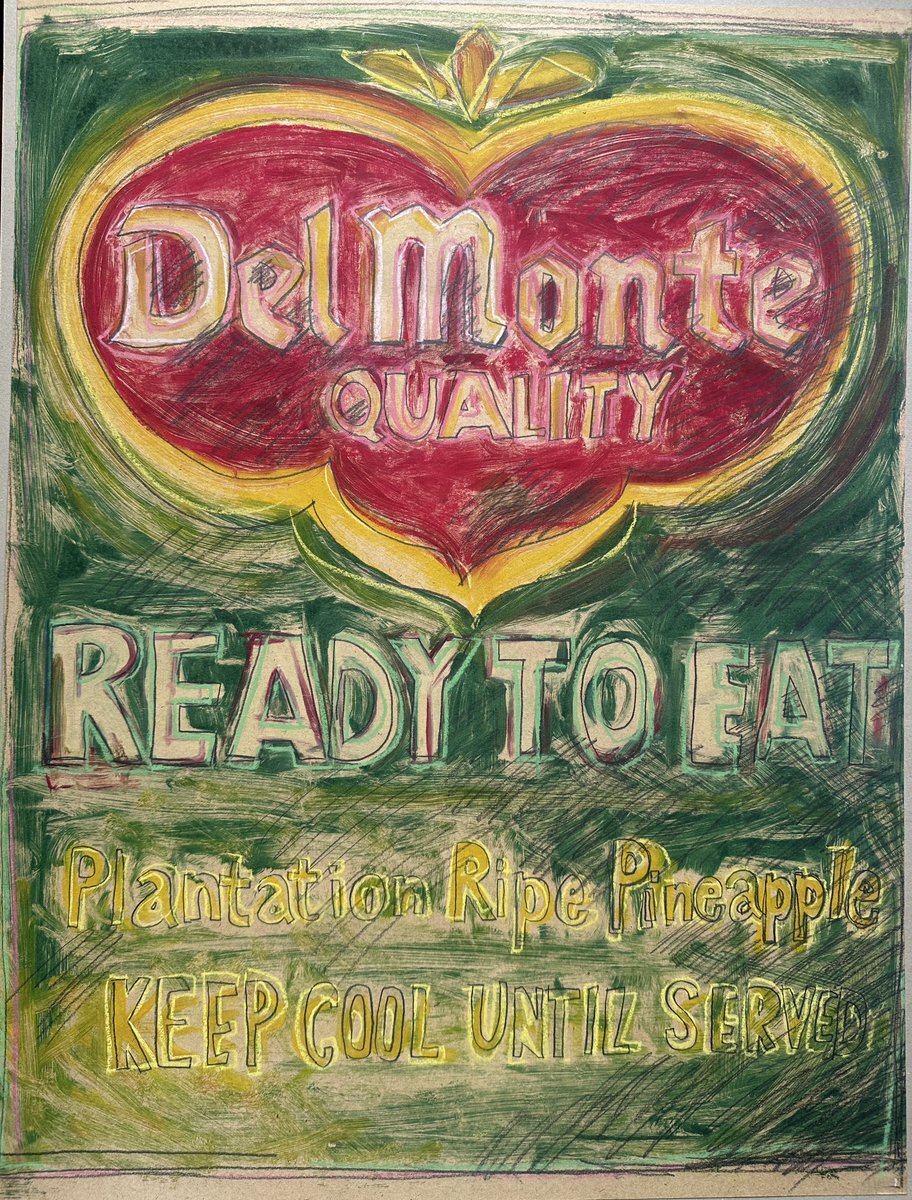 Del Monte
QUALITY
READY TO EAT
Plantation Ripe Pineapple
KEEP COOL UNTIL SERVED